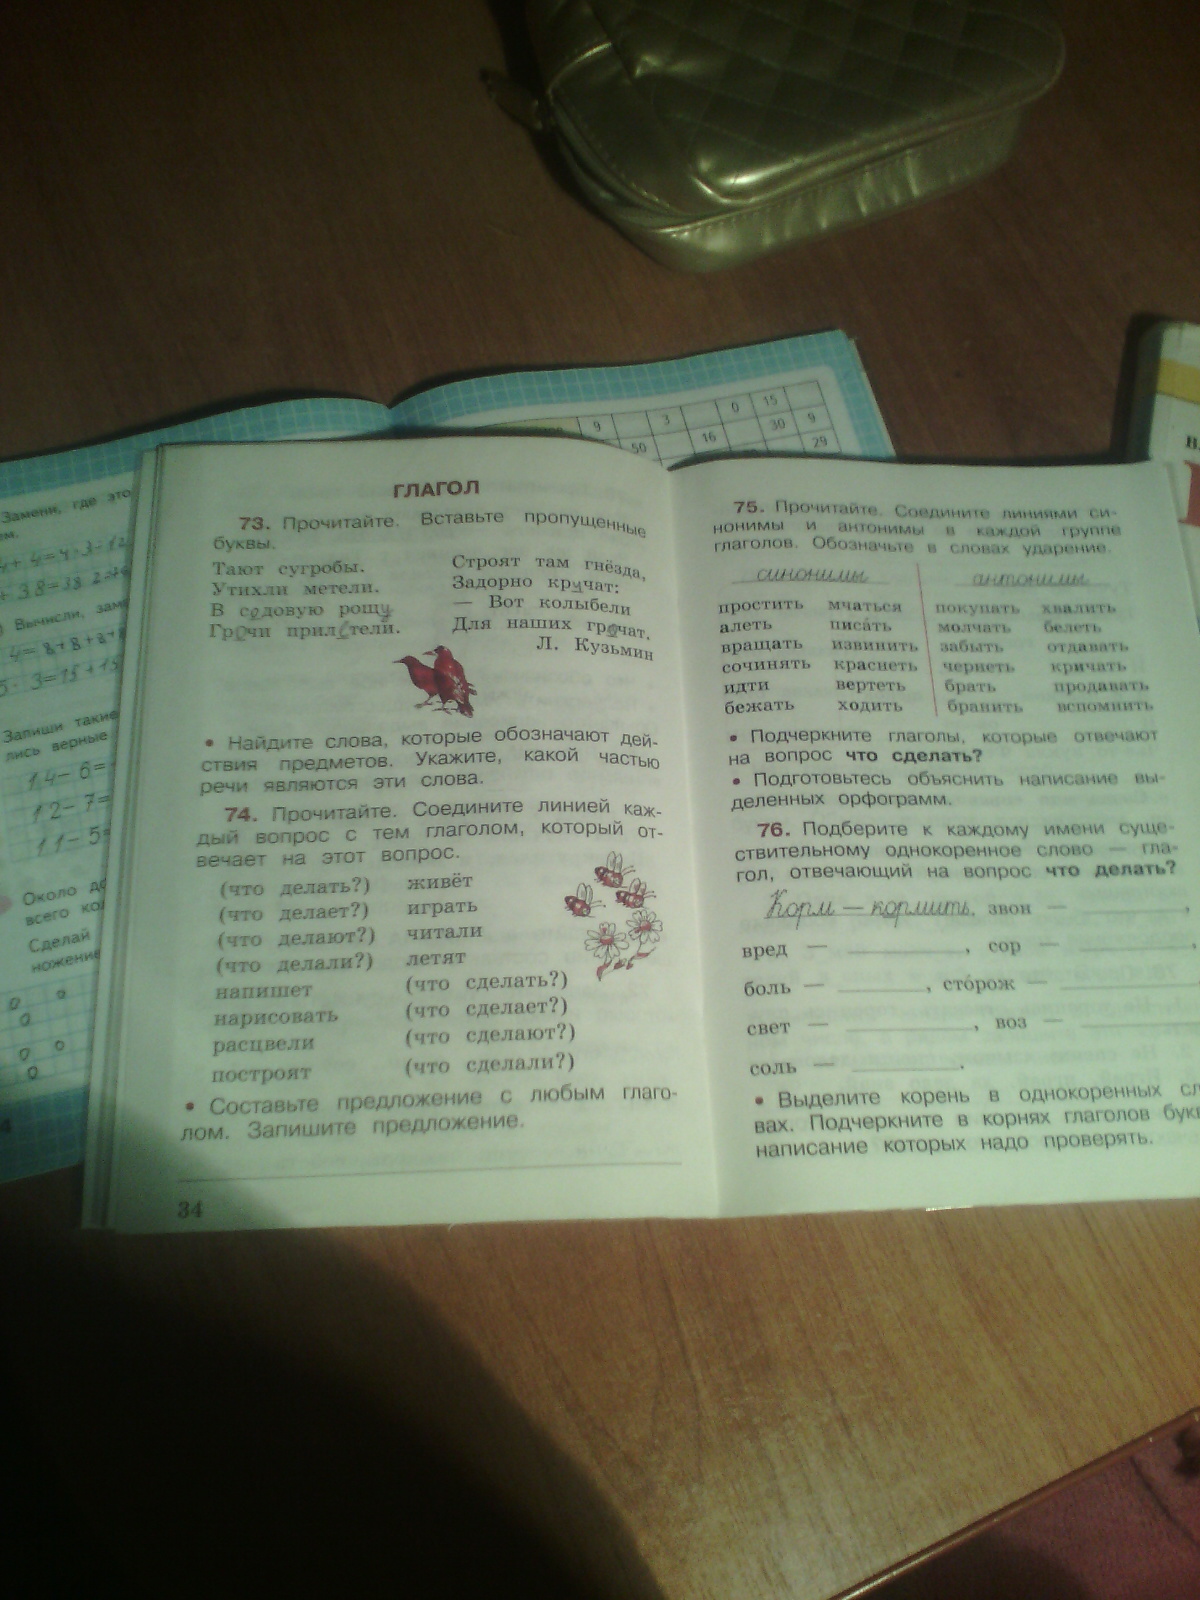 9 3 0 15
50 16 30 9
29
Замени, где это
4+4=4·3=12
Вычисли,
3=15+15
Запиши такие
лись верные
14-6=
12-7=
11-5=
Около
всего
Сделай
ножение
ГЛАГОЛ
73. Прочитайте. Вставьте пропущенные
буквы.
Тают сугробы.
Утихли метели.
В садовую рощу
Грачи прилетели.
Строят там гнёзда,
Задорно кричат:
— Вот колыбели
Для наших грачат.
Л. Кузьмин
• Найдите слова, которые обозначают дей-
ствия предметов. Укажите, какой частью
речи являются эти слова.
74. Прочитайте. Соедините линией каж-
дый вопрос с тем глаголом, который от-
вечает на этот вопрос.
(что делать?) живёт
(что делает?) играть
(что делают?) читали
(что делали?) летят
напишет (что сделать?)
нарисовать (что сделает?)
расцвели (что сделают?)
построят (что сделали?)
• Составьте предложение с любым глаго-
лом. Запишите предложение.
34
75. Прочитайте. Соедините линиями си-
нонимы и антонимы в каждой группе
глаголов. Обозначьте в словах ударение.
синонимы антонимы
простить мчаться покупать хвалить
алеть писа́ть молчать белеть
вращать извинить забыть отдавать
сочинять краснеть чернеть кричать
идти вертеть брать продавать
бежать ходить бранить вспомнить
• Подчеркните глаголы, которые отвечают
на вопрос что сделать?
• Подготовьтесь объяснить написание вы-
деленных орфограмм.
76. Подберите к каждому имени суще-
ствительному однокоренное слово — гла-
гол, отвечающий на вопрос что делать?
Корм — кормить, звон — ,
вред — , сор — ,
боль — , сто́рож —
свет — , воз —
соль — .
• Выделите корень в однокоренных сл
вах. Подчеркните в корнях глаголов бук
написание которых надо проверять.